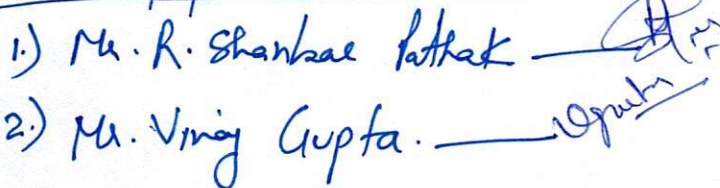 1.) Mr. R. Shankar Pathak
2.) Mr. Vinay Gupta.